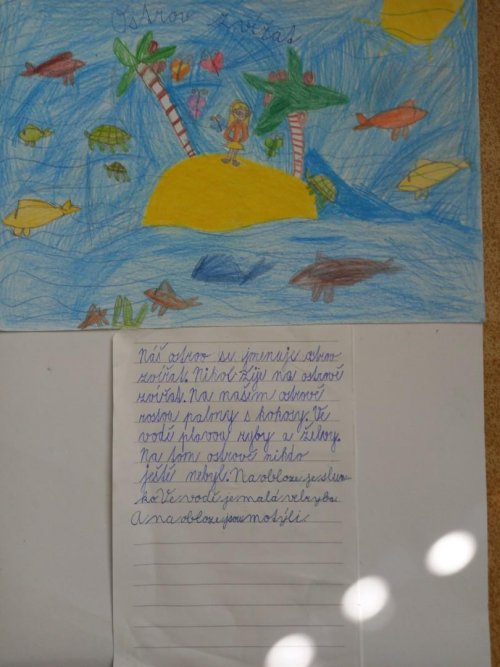 Ostrov zvířat
Náš ostrov se jmenuje ostrov
zvířat. Nikol žije na ostrově
zvířat. Na našem ostrově
rostou palmy s kokosy. Ve
vodě plavou ryby a želvy.
Na tom ostrově nikdo
ještě nebyl. Na obloze je slun
ko Ve vodě je malá velryba
A na obloze jsou motýli